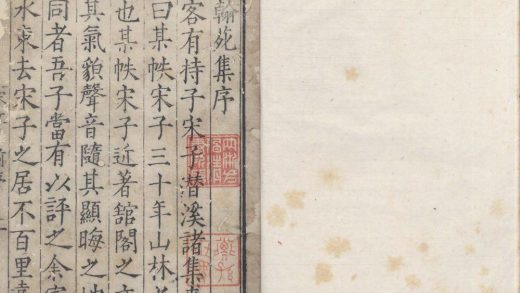 翰苑集序
客有持子宋子潛溪諸集
曰某帙宋子三十年山林
也某帙宋子近著舘閣之
其氣貌聲音隨其顯晦之地
同者吾子當有以評之余
水東去宋子之居不百里